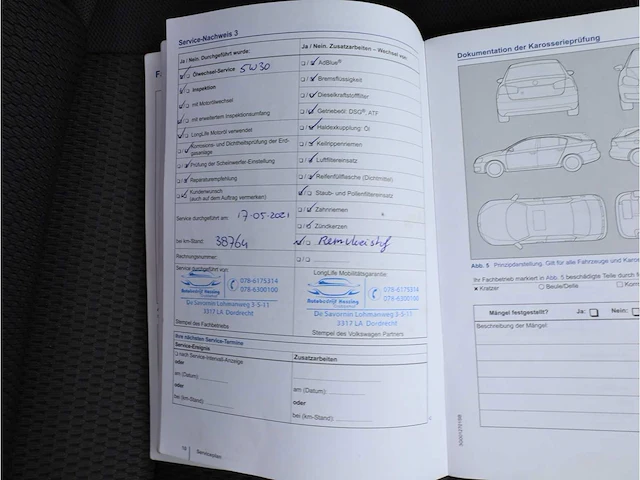 Service-Nachweis 3
Ja / Nein. Durchgeführt wurde:
Ölwechsel-Service 5W30
Inspektion
mit Motorölwechsel
mit erweitertem Inspektionsumfang
LongLife Motoröl verwendet
Korrosions- und Dichtheitsprüfung der Erd-
gasanlage
Prüfung der Scheinwerfer-Einstellung
Reparaturempfehlung
Kundenwunsch
(auch auf dem Auftrag vermerken)
Service durchgeführt am: 17-05-2021
bei km-Stand: 38764
Rechnungsnummer:
Service durchgeführt von:
078-6175314
078-6300100
Autobedrijf Hessing
De Savornin Lohmanweg 3-5-11
3317 LA Dordrecht
Stempel des Fachbetriebs
Ja / Nein. Zusatzarbeiten – Wechsel von:
AdBlue®
Bremsflüssigkeit
Dieselkraftstofffilter
Getriebeöl: DSG®, ATF
Haldexkupplung: Öl
Keilrippenriemen
Luftfiltereinsatz
Reifenfüllflasche (Dichtmittel)
Staub- und Pollenfiltereinsatz
Zahnriemen
Zündkerzen
Remvloeistof
LongLife Mobilitätsgarantie:
078-6175314
078-6300100
Autobedrijf Hessing
De Savornin Lohmanweg 3-5-11
3317 LA Dordrecht
Stempel des Volkswagen Partners
Ihre nächsten Service-Termine
Service-Ereignis
nach Service-Intervall-Anzeige
oder
am (Datum):
oder
bei (km-Stand):
Zusatzarbeiten
am (Datum):
oder
bei (km-Stand):
18 Serviceplan
Dokumentation der Karosserieprüfung
Abb. 5 Prinzipdarstellung. Gilt für alle Fahrzeuge und Karos
Ihr Fachbetrieb markiert in Abb. 5 beschädigte Teile durch f
× Kratzer ○ Beule/Delle □ Korro
Mängel festgestellt? Ja: Nein:
Beschreibung der Mängel: